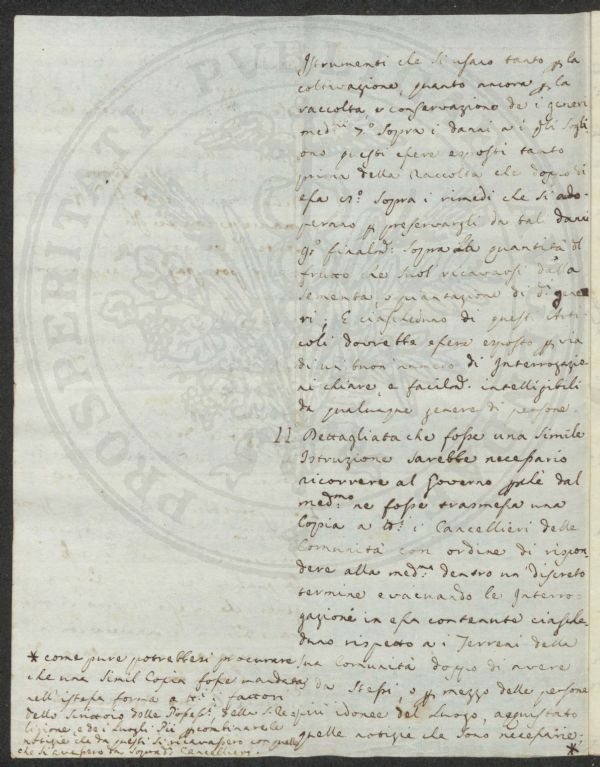 Istrumenti che si usano tanto p la
coltivazione, quanto ancora p la
raccolta, e conservazione de i generi
med.mi 7.o Sopra i danni a i qli sogli
ono questi essere esposti tanto
prima della Raccolta che doppo di
essa 8.o Sopra i rimedi che si ado-
perano p preservargli da tal danni
9.o finalm. Sopra la quantità di
frutto che suol ricavarsi dalla
sementa, o piantazione di d.i gene
ri; E ciascheduno di questi Arti-
coli dovrebbe essere esposto p via
di un buon numero di Interrogazio
ni chiare, e facilm. intelligibili
da qualunque genere di persone.
11 Dettagliata che fosse una simile
Istruzione sarebbe necessario
ricorrere al Governo p.lè dal
med.mo ne fosse trasmessa una
Copia a t.i i Cancellieri delle
Comunità con ordine di rispon-
dere alla med.ma dentro un discreto
termine evacuando le Interro-
gazioni in essa contenute ciasche
duno rispetto a i Terreni della
sua Comunità doppo di avere
da Stessi, o p mezzo delle persone
più idonee del Luogo, acquistato
quelle notizie che sono necessarie;
*
* come pure potrebbesi procurare
che una simil Copia fosse mandata
nell'istessa forma a t.i i fattori
dello Scrittoio delle Possess.i, della S. Re
ligione e de i Luoghi Pii p combinare le
notizie che da questi si ricavassero con quelle
che si avessero da Sopradi Cancellieri.
PROSPERITATI PUBL